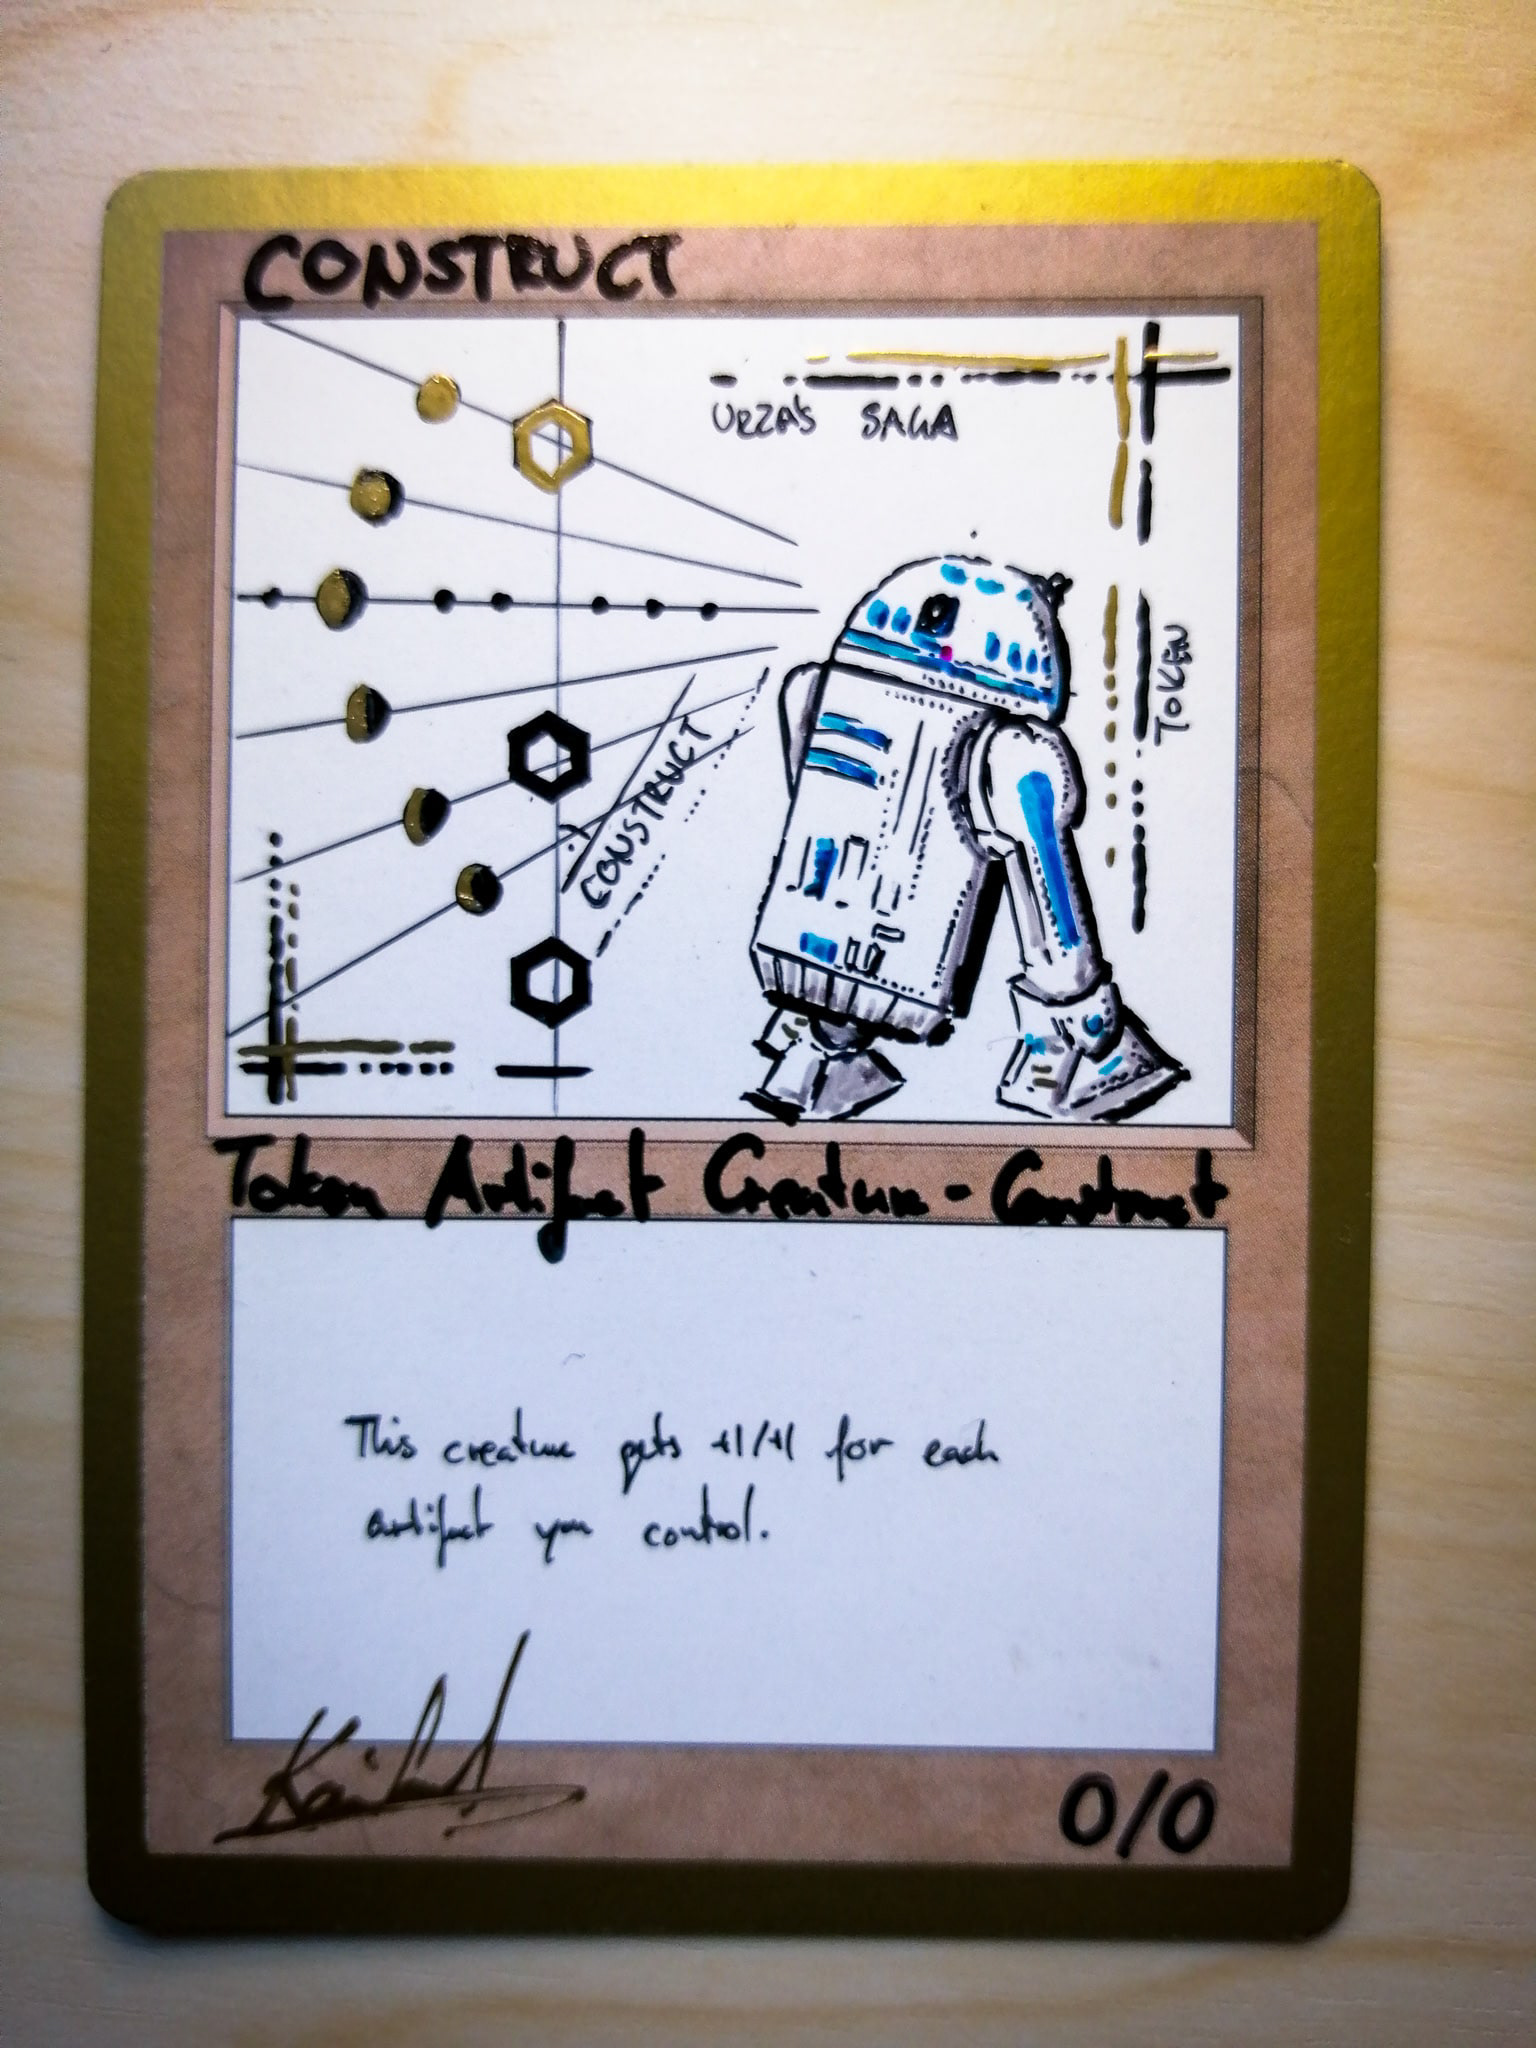 CONSTRUCT
URZA'S SAGA
TOKEN
CONSTRUCT
Token Artifact Creature - Construct
This creature gets +1/+1 for each
artifact you control.
0/0